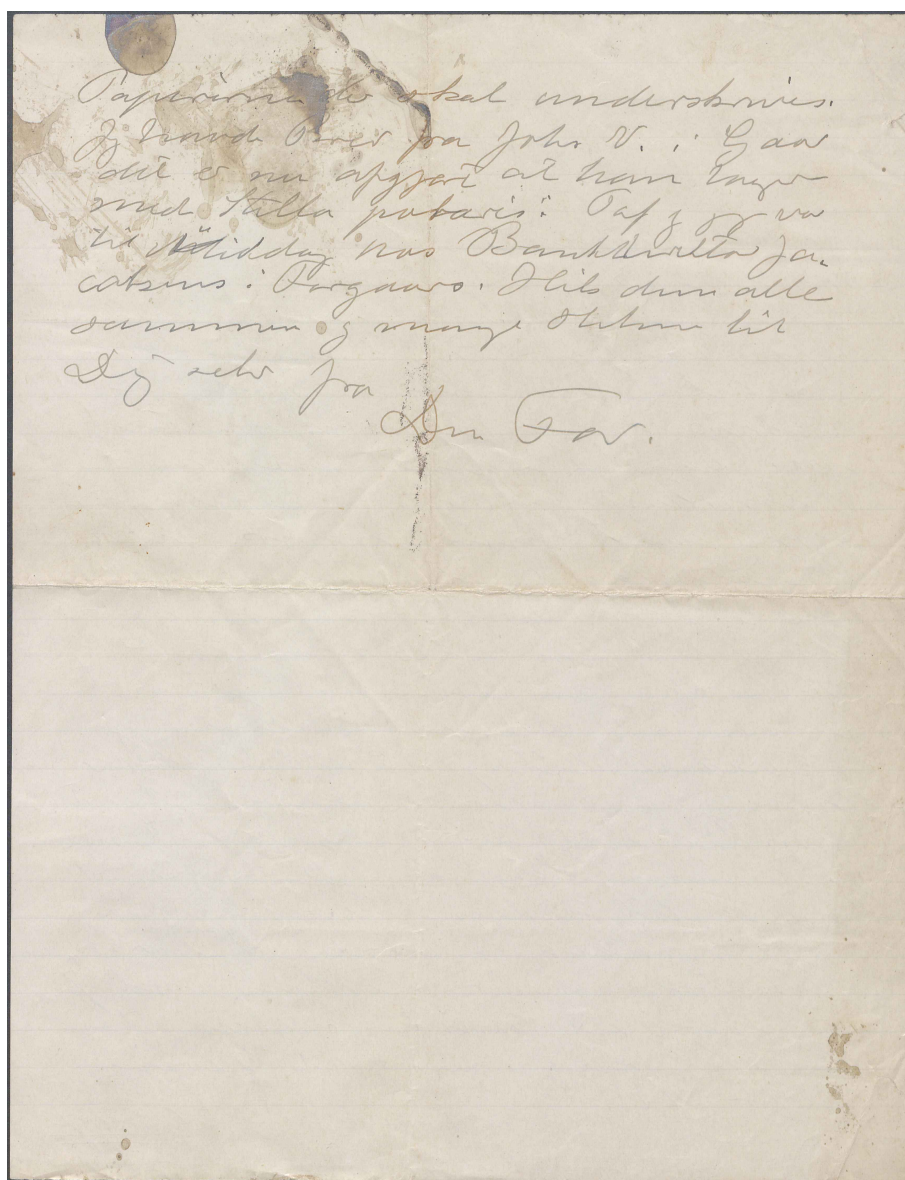 Papirerne der skal underskrives.
Jeg havde Brev fra John V. i Gaar
det er nu afgjort at han tager
med Stella polaris". og jeg var
til Middag hos Bankdirektør Ja-
cobsens i Forgaars. Hils dem alle
sammen og mange Hilsner til
Dig selv fra
Din Far.